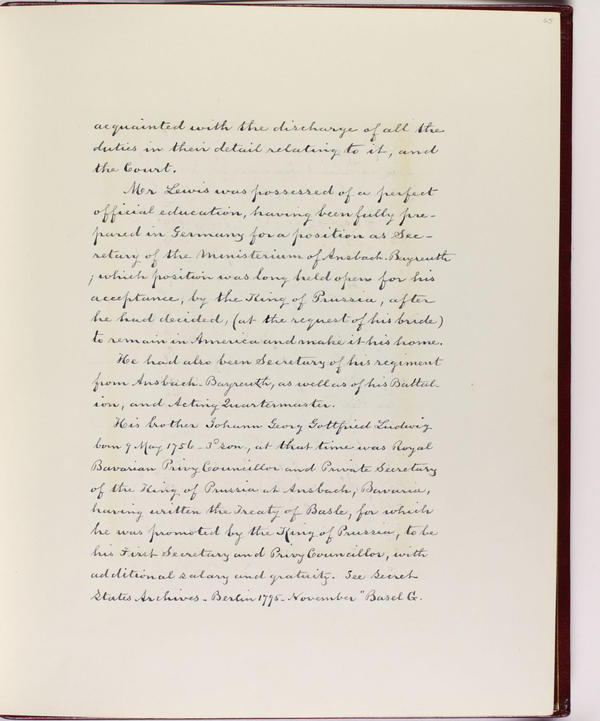 65
acquainted with the discharge of all the
duties in their detail relating to it, and
the Court.
Mr Lewis was possessed of a perfect
official education, having been fully pre-
pared in Germany for a position as Sec-
retary of the Ministerium of Ansbach-Bayreuth
; which position was long held open for his
acceptance, by the King of Prussia, after
he had decided, (at the request of his bride)
to remain in America and make it his home.
He had also been Secretary of his regiment
from Ansbach-Bayreuth, as well as of his Battal-
ion, and Acting Quartermaster.
His brother Johann Georg Gottfried Ludwig
born 9 May 1756 - 3d son, at that time was Royal
Bavarian Privy Councillor and Private Secretary
of the King of Prussia at Ansbach, Bavaria,
having written the Treaty of Basle, for which
he was promoted by the King of Prussia, to be
his First Secretary and Privy Councillor, with
additional salary and gratuity. See Secret
States Archives - Berlin 1795 - November "Basel G.